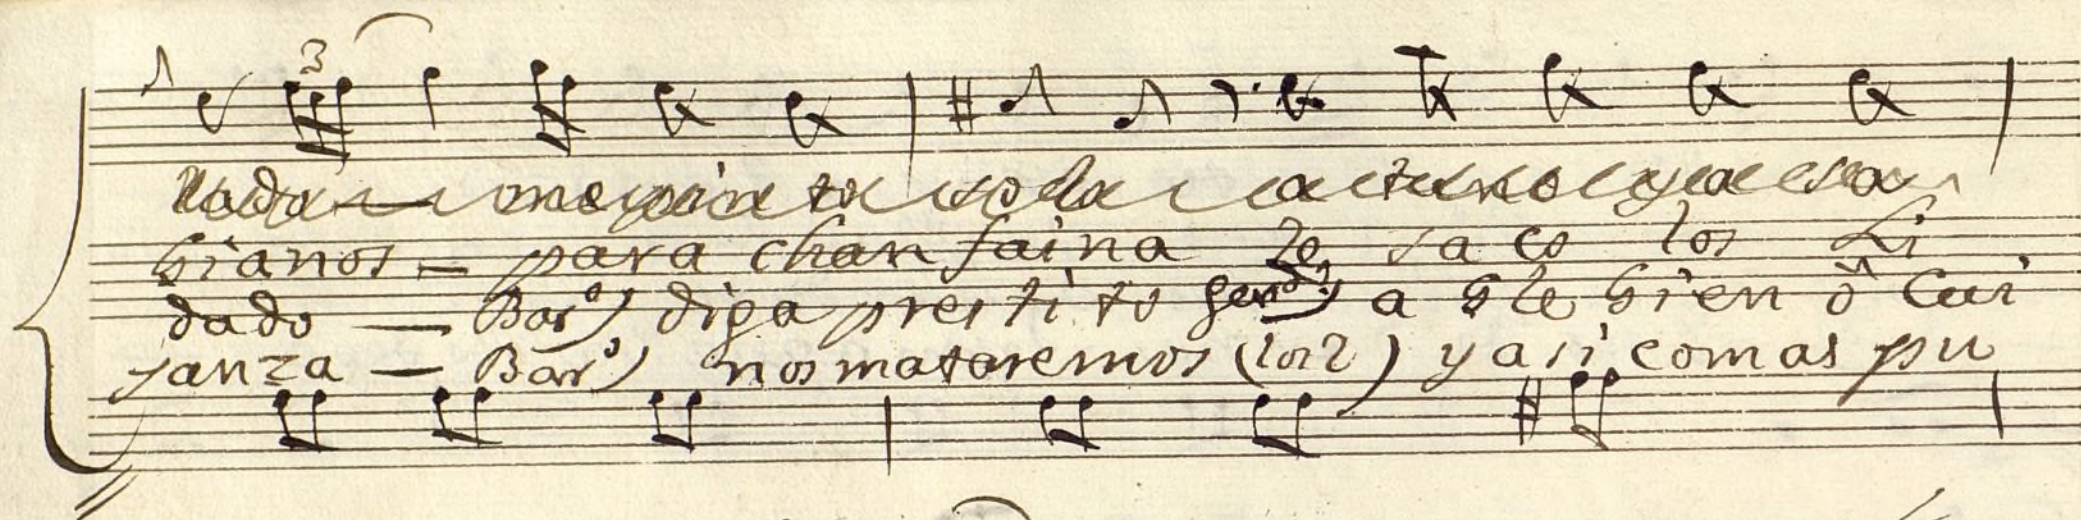 3
me pinta toda
bianos — para chanfaina le saco los Li
dado — Barº) diga prestito able bien ô Cui
janza — Barº) nos mataremos (los 2) y asi comas pu